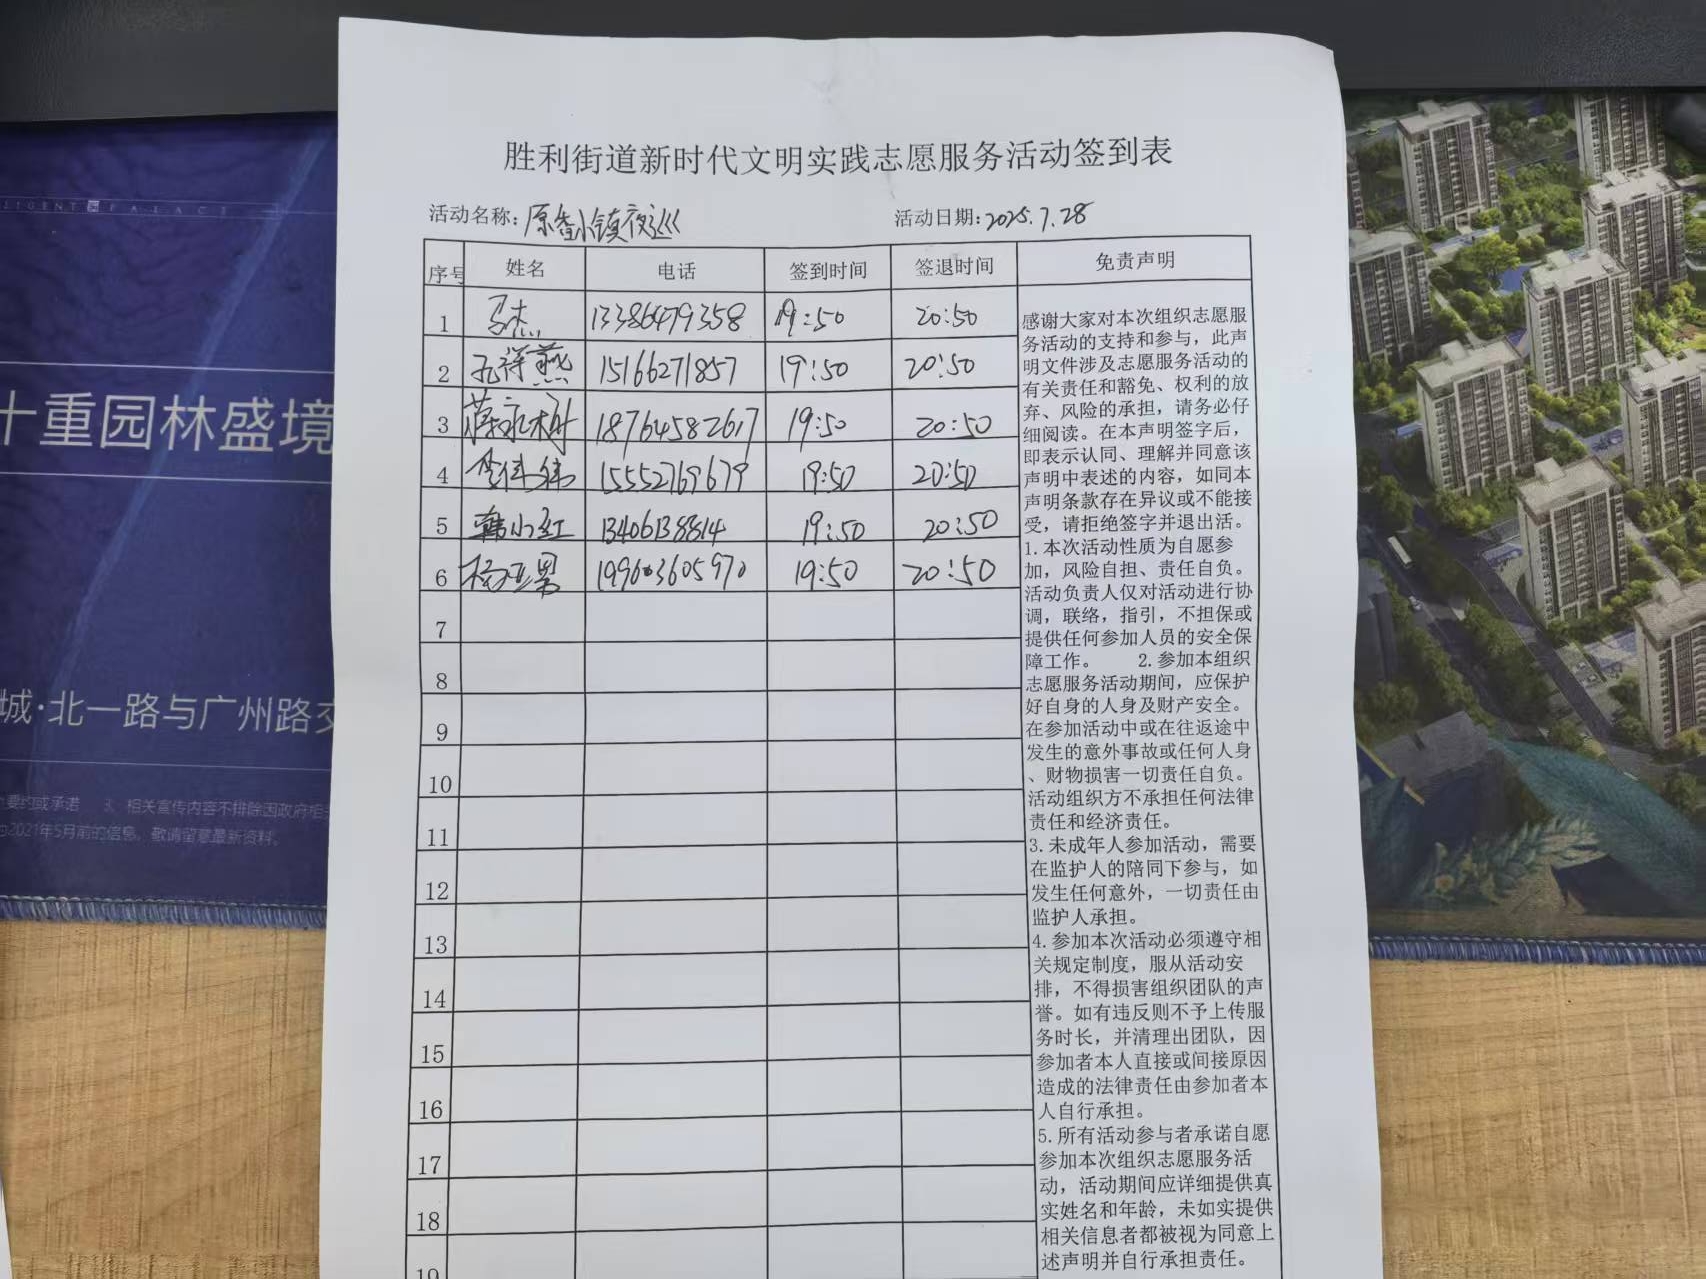 胜利街道新时代文明实践志愿服务活动签到表
活动名称：原香小镇夜巡
活动日期：2025.7.28
序号 姓名 电话 签到时间 签退时间 免责声明
1 马杰 13386479358 19:50 20:50
2 孔祥燕 15166271857 19:50 20:50
3 蒋永树 18764582617 19:50 20:50
4 15552769679 19:50 20:50
5 韩小红 13406138814 19:50 20:50
6 杨亚男 19963605970 19:50 20:50
7
8
9
10
11
12
13
14
15
16
17
18
19
感谢大家对本次组织志愿服
务活动的支持和参与，此声
明文件涉及志愿服务活动的
有关责任和豁免、权利的放
弃、风险的承担，请务必仔
细阅读。在本声明签字后，
即表示认同、理解并同意该
声明中表述的内容，如同本
声明条款存在异议或不能接
受，请拒绝签字并退出活。
1.本次活动性质为自愿参
加，风险自担、责任自负。
活动负责人仅对活动进行协
调，联络，指引，不担保或
提供任何参加人员的安全保
障工作。 2.参加本组织
志愿服务活动期间，应保护
好自身的人身及财产安全。
在参加活动中或在往返途中
发生的意外事故或任何人身
、财物损害一切责任自负。
活动组织方不承担任何法律
责任和经济责任。
3.未成年人参加活动，需要
在监护人的陪同下参与，如
发生任何意外，一切责任由
监护人承担。
4.参加本次活动必须遵守相
关规定制度，服从活动安
排，不得损害组织团队的声
誉。如有违反则不予上传服
务时长，并清理出团队，因
参加者本人直接或间接原因
造成的法律责任由参加者本
人自行承担。
5.所有活动参与者承诺自愿
参加本次组织志愿服务活
动，活动期间应详细提供真
实姓名和年龄，未如实提供
相关信息者都被视为同意上
述声明并自行承担责任。
LIGENT PALACE
十重园林盛境
城·北一路与广州路交
要约或承诺 3、相关宣传内容不排除因政府相关
为2021年5月前的信息，敬请留意最新资料。